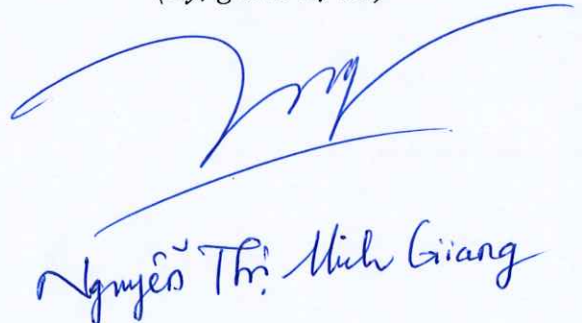 Nguyễn Thị Minh Giang